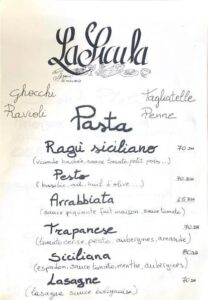 La Sicula
Gnocchi
Ravioli
Tagliatelle
Penne
Pasta
Ragù siciliano 70 DH
(viande hachée, sauce tomate, petit pois...)
Pesto 70 DH
(basilic, ail, huile d'olive...)
Arrabbiata 65 DH
(sauce piquante fait maison, sauce tomate)
Trapanese 70 DH
(tomate cerise, pesto, aubergines, amande)
Siciliana 80 DH
(espadon, sauce tomate, menthe, aubergines)
Lasagne 70 DH
(lasagne sauce bolognaise)